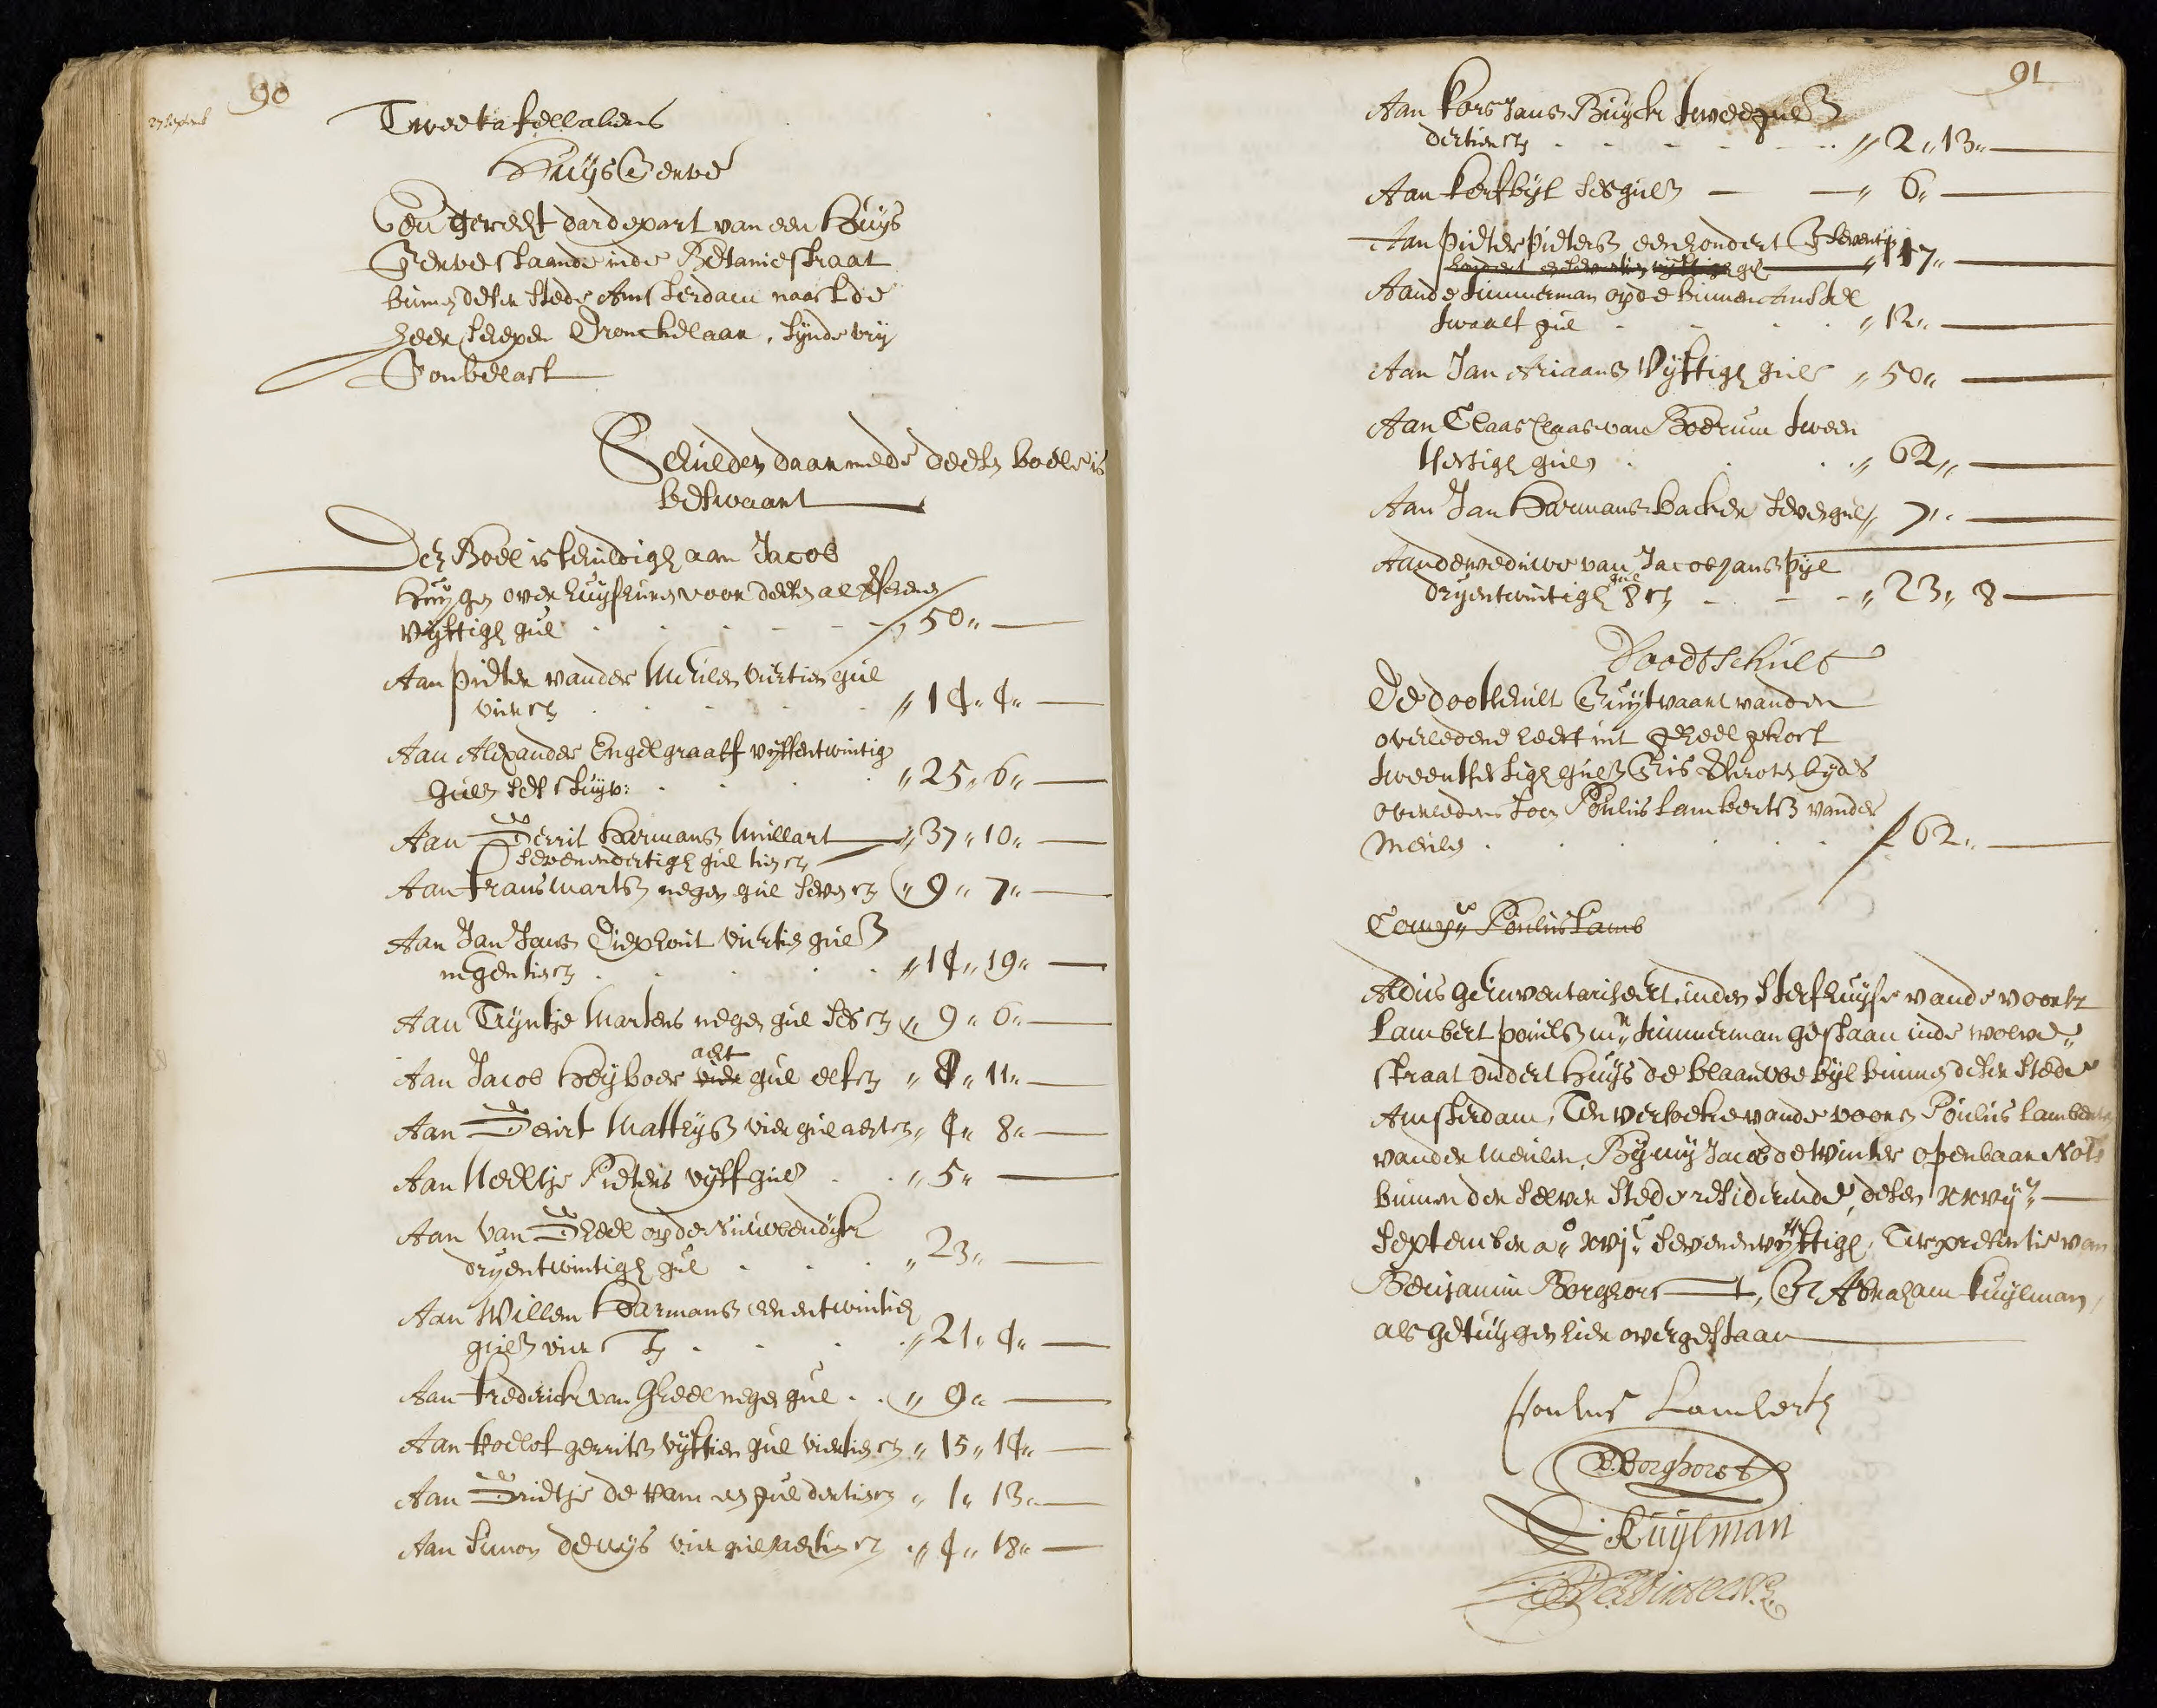 90
27 September
Twee tafellakens
Huys & erve
Een gerecht dardepart van een Huys
& erve staande inde Betaniestraat
binne deser stede Amsterdam naast de
heer schepen Bronckelaar, synde vry
& onbelast
Schulden daarmede desen boele is
beswaart
Den Boel is schuldigh aan Jacob
Huygen over huyshuure voor desen al
vyftigh gul 50
Aan Pieter vander Meulen viertien gul
vier st 14 4
Aan Alexander Engelgraaff vyffentwintig
gulen ses stuyv: 25 6
Aan Gerrit Harmans Mullart 37 10
sevenendertigh gul tien st
Aan Frans Marts negen gul seven st 9 7
Aan Jan Jans Diephout viertien gul
negentien st 14 19
Aan Tryntje Martens negen gul ses st 9 6
Aan Jacob Heyboer vier acht gul elf st 8 11
Aan Geurt Matthys vier gul acht st 4 8
Aan Neeltje Pieters vyff gul 5
Aan van Gheel op de Nieuwendyck
dryentwintigh gul 23
Aan Willem Harmans eenentwintich
gul vier st 21 4
Aan Frederick van Gheel negen gul 9
Aan Roelof gerrits vyftien gul viertien st 15 14
Aan Grietje de Ram een gul dertien st 1 13
Aan Simon de Uys vier gul achtien st 4 18
91
Aan Kors Jans Buyck twee gul
dertien st 2 13
Aan Kerfbyl ses gul 6
Aan Pieter Pieters eenhondert & seventien
hondert en seventien vyftigh gl 117
Aan de timmerman op de binnen Amstel
twaalf gul 12
Aan Jan Ariaans Vyftigh gul 50
Aan Claas Claas van Boerum tween
tsestigh gul 62
Aan Jan Harmans backer seven gul 7
Aan de weduwe van Jacob Jans Pyl
dryentwintigh gul 8 st 23 8
Dootschult
De dootschult & uytvaart vanden
overledene heeft int gheel gekost
tweentsestigh gul & is verschoten by des
overledens soon Poulus Lamberts vander
Meulen 62
Comp Poulus Lamb
Aldus geinventariseert inden sterfhuyse vande voorsz
Lambert Pouls mr timmerman gestaan inde wolve
straat ondert Huys de blaauwe byl binnen deser stede
Amsterdam, Ten versoecke vande voorn Poulus Lamberts
vander Meulen, By my Jacob de Winter openbaar Nots
binnen der selver stede residerende, desen xxvij
September ao xvjc sevenenvyftigh, Ter presentie van
Benjamin Borghorst, & Abraham Kuylman,
als getuygen hier over gestaan
Poulus Lambertz
B. Borghorst
Kuylman